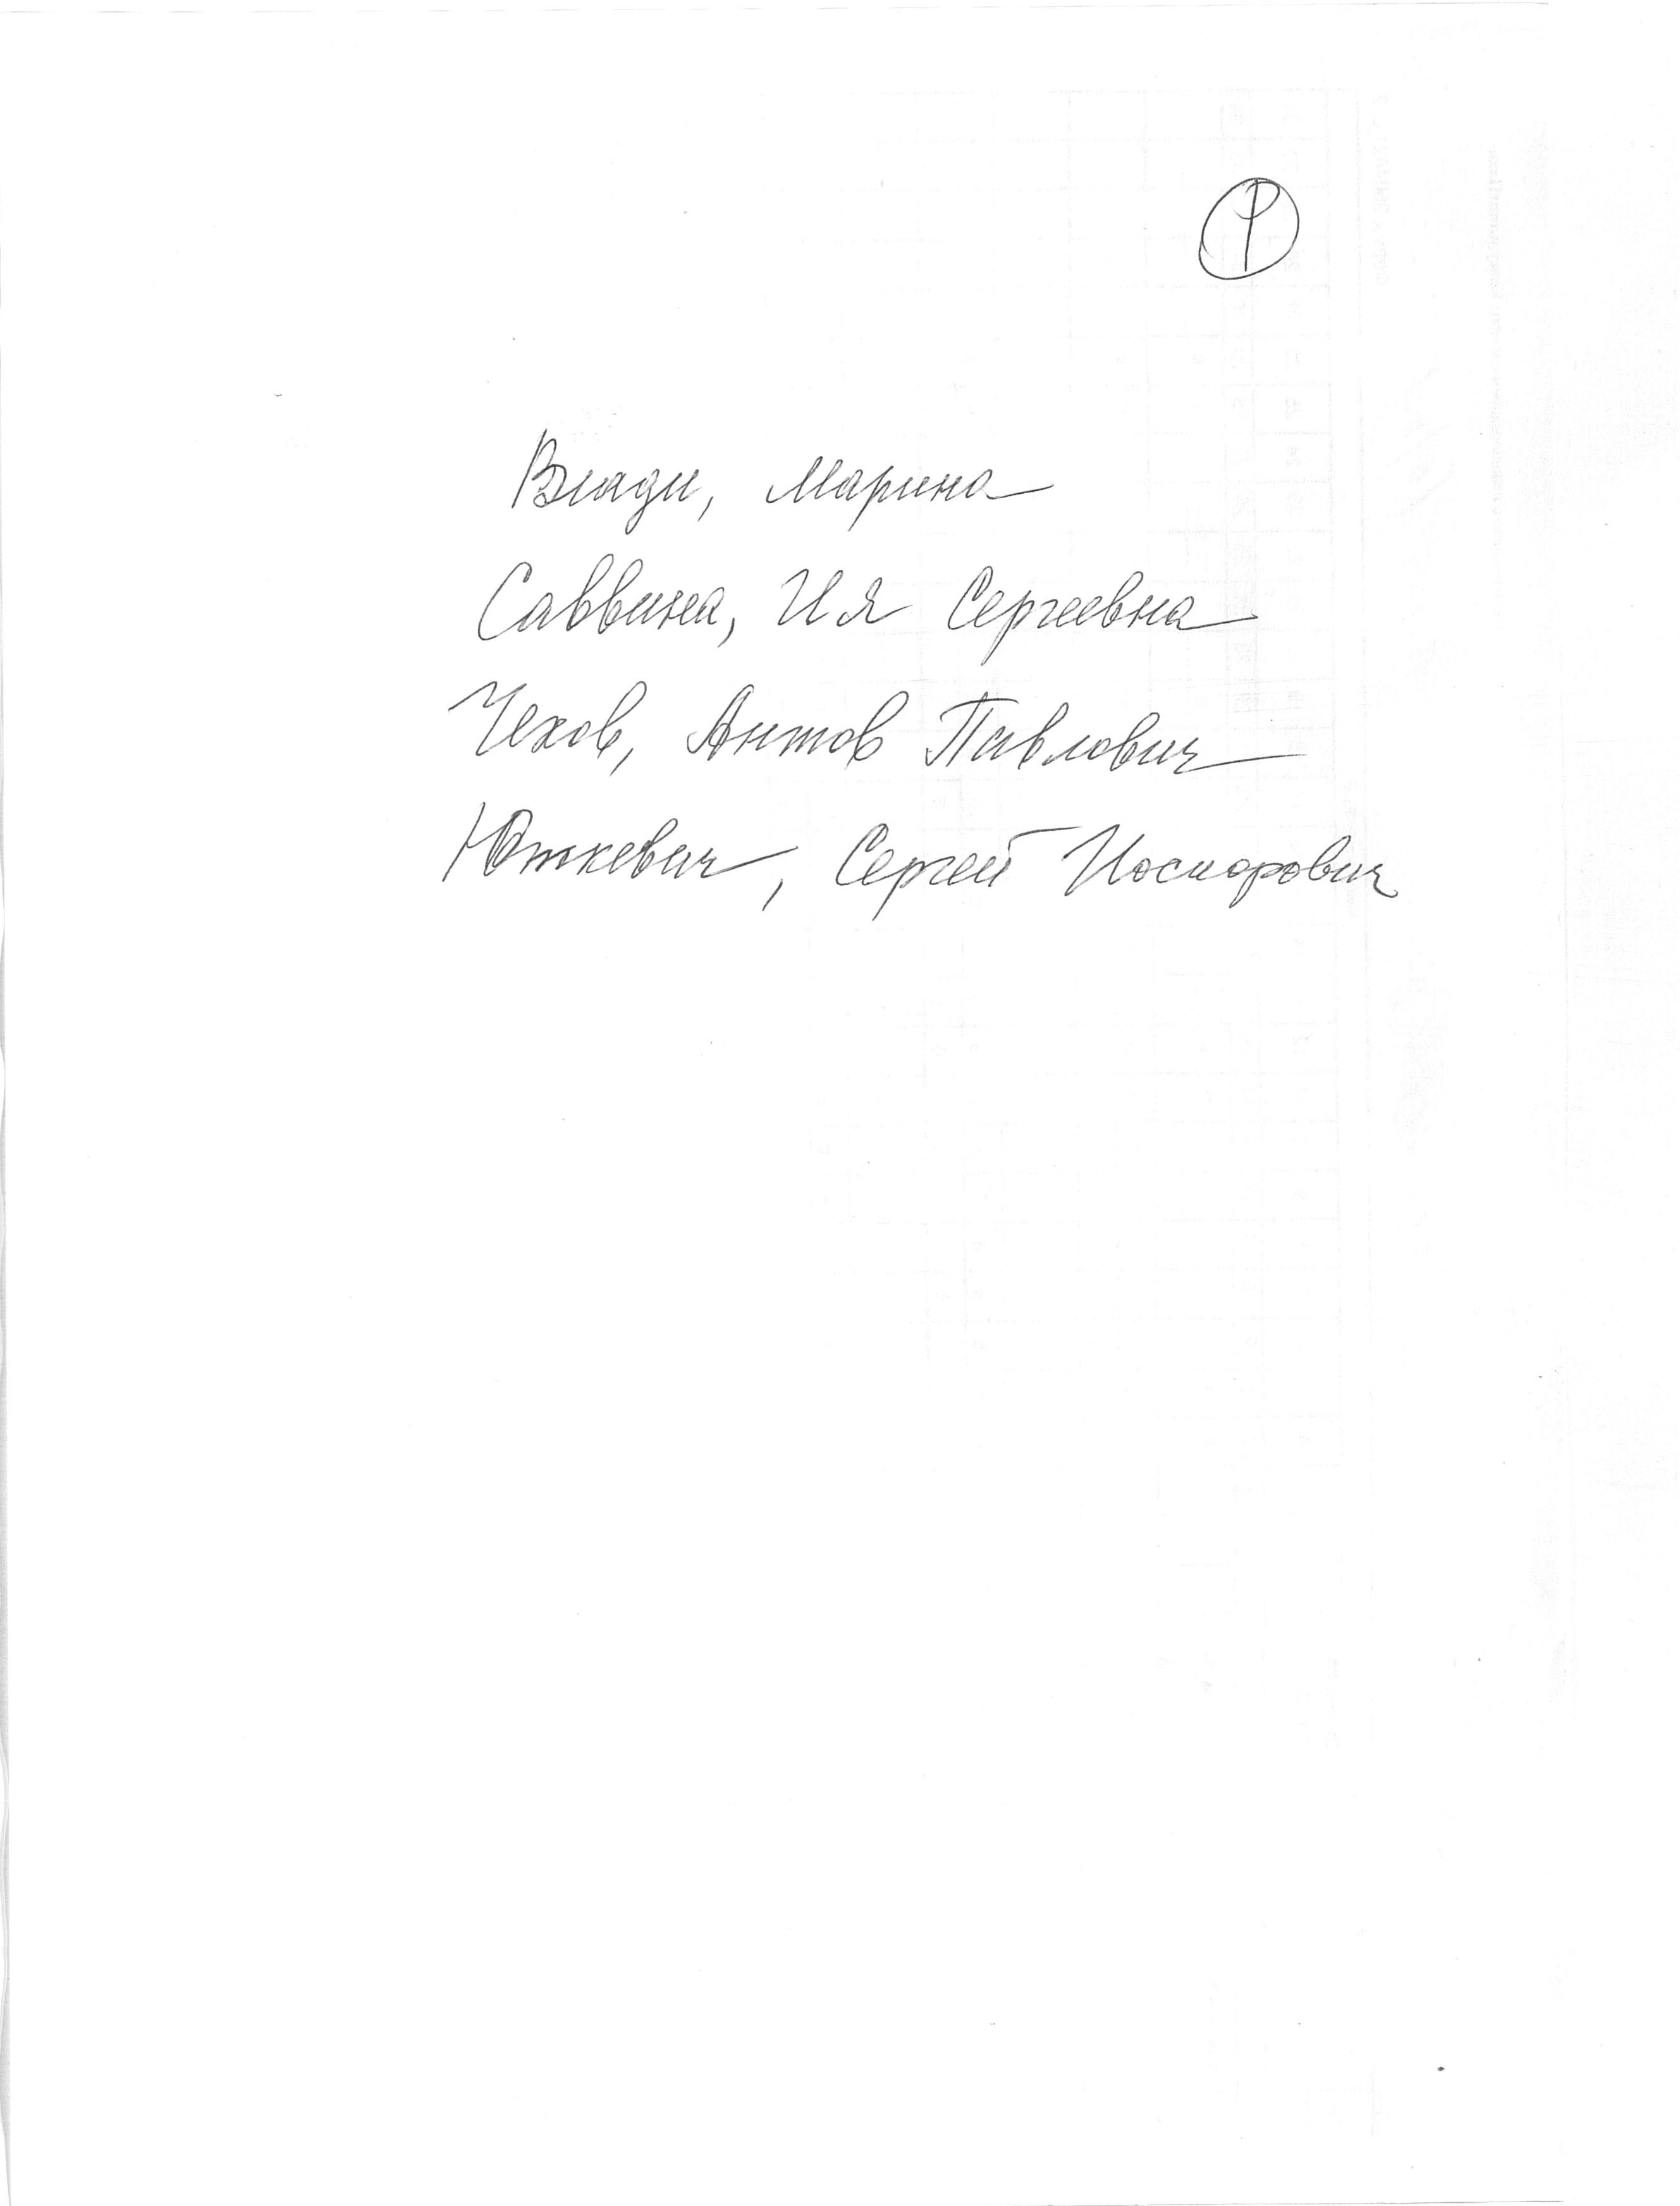 Влади, Марина
Саввина, Ия Сергеевна
Чехов, Антов Павлович
Юткевич, Сергей Иосифович